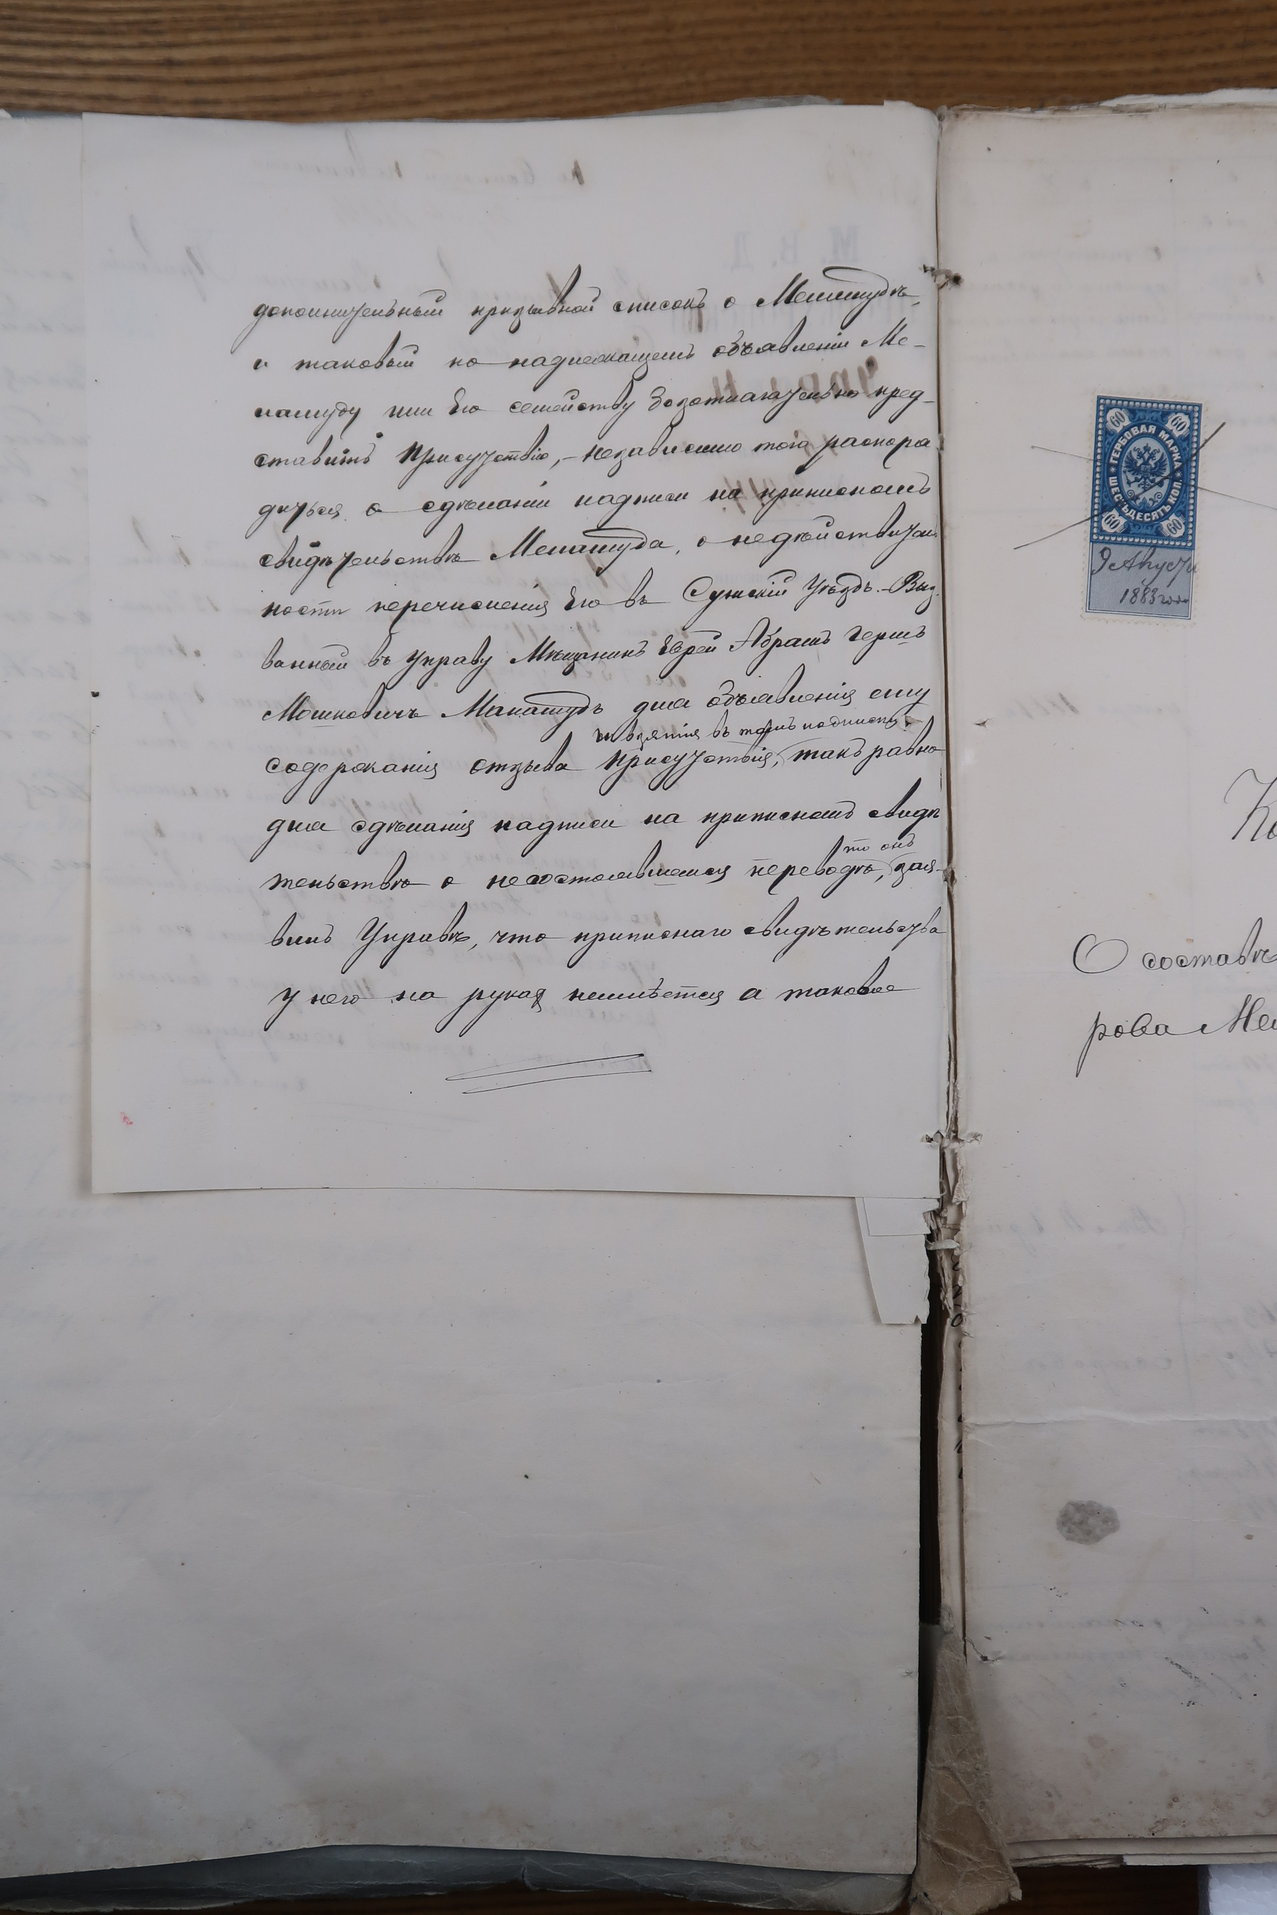 дополнительный призывной списокъ о Меламудѣ,
и таковый по надлежащемъ объявленіи Ме-
ламуду или Его семейству безотлагательно пред-
ставить Присутствію,- независимо того распоря
диться о сдѣланіи надписи на приписномъ
свидѣтельствѣ Меламуда, о недѣйствитель
ности перечисленія Его въ Сумскій Уѣздъ.- Выз
ванный въ Управу Мѣщанинъ Еврей Абрамъ Гершъ
Мошковичъ Маламудъ для объявленія ему
и взятія въ томъ подписки
содержанія отзыва Присутствія, такъ равно
для сдѣланія надписи на приписномъ свидѣ
то онъ
тельствѣ о несостоявшемся переводѣ, зая-
вилъ Управѣ, что приписнаго свидѣтельства
у него на рукахъ неимѣется а таковое
ГЕРБОВАЯ МАРКА
ШЕСТЬДЕСЯТЪ КОП.
60 60
60 60
9 Августа
1883 года
О составѣ
рова Ме